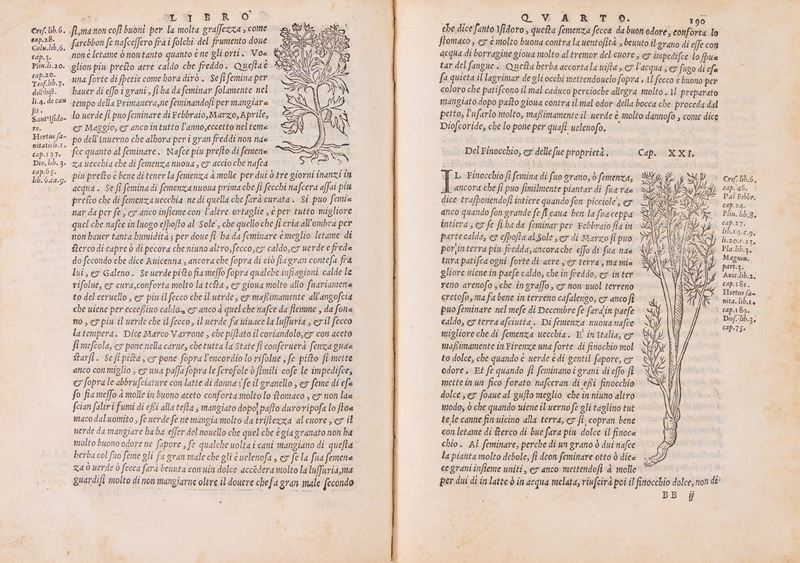 LIBRO
Cres. lib. 6.
cap. 28.
Colu. lib. 6.
cap. 3.
Plin. li. 20.
cap. 20.
Teof. lib. 7.
dell'inst.
li. 4. de cau
sis.
Sant' Isido-
ro.
Hortus sa-
nitatis li. 1.
cap. 137.
Dio. lib. 3.
cap. 65.
lib. 6. ca. 9.
sì, ma non così buoni per la molta grassezza, come
sarebbon se nascessero fra i solchi del frumento doue
non è letame ò non tanto quanto è ne gli orti. Vo-
glion piu presto aere caldo che freddo. Questa è
una sorte di spetie come hora dirò. Se si semina per
hauer di essi i grani, si ha da seminar solamente nel
tempo della Primauera, ne seminandosi per mangiar-
lo uerde si puo seminare di Febbraio, Marzo, Aprile,
& Maggio, & anco in tutto l'anno, eccetto nel tem-
po dell'Inuerno che alhora per i gran freddi non na-
sce quanto al seminare. Nasce piu presto di semen-
za uecchia che di semenza nuoua, & accio che nasca
piu presto è bene di tener la semenza à molle per dui ò tre giorni inanzi in
acqua. Se si semina di semenza nuoua prima che si secchi nascera assai piu
presto che di semenza uecchia ne di quella che sarà curata. Si puo semi-
nar da per se, & anco insieme con l'altre ortaglie, è per tutto migliore
quel che nasce in luogo esposto al Sole, che quello che si cria all'ombra per
non hauer tanta humidità; per doue si ha da seminare è meglio letame di
sterco di capre ò di pecore che niuno altro, secco, & caldo, & uerde è fred-
do secondo che dice Auicenna, ancora che sopra di ciò sia gran contesa fra
lui, & Galeno. Se uerde pisto sia messo sopra qualche infiagioni calde le
risolue, & cura, conforta molto la testa, & gioua molto allo suariamen-
to del ceruello, & piu il secco che il uerde, & massimamente all'angoscia
che uiene per eccessiuo caldo, & anco à quel che nasce da flemme, da son-
no, & piu il uerde che il secco, il uerde fa uiuace la lussuria, & il secco
la tempera. Dice Marco Varrone, che pistato il coriandolo, & con aceto
si mescola, & pone nella carne, che tutta la State si conseruerà senza gua-
starsi. Se si pista, & pone sopra l'encordio lo risolue, se pisto si mette
anco con miglio, & uua passa sopra le scrofole ò simili cose le impedisce,
& sopra le abbrusciature con latte di donna: se il granello, & seme di es-
so sia messo à molle in buono aceto conforta molto lo stomaco, & non la-
scian salir i fumi di essi alla testa, mangiato dopo pasto duro riposa lo sto-
maco dal uomito, se uerde se ne mangia molto da tristezza al cuore, & il
uerde da mangiare ha da esser del nouello che quel che è gia granato non ha
molto buono odore ne sapore, se qualche uolta i cani mangiano di questa
herba col suo seme gli fa gran male che gli è uelenosa, & se la sua semen-
za ò uerde ò secca sarà beuuta con uin dolce accederà molto la lussuria, ma
guardisi molto di non mangiarne oltre il douere che fa gran male secondo
QVARTO. 190
che dice santo Isidoro, questa semenza secca da buon odore, conforta lo
stomaco, & è molto buona contra la uentosità, beuuto il grano di esse con
acqua di borragine gioua molto al tremor del cuore, & impedisce lo spu-
tar del sangue. Questa herba accorta la uista, & l'acqua, & sugo di es-
sa quieta il lagrimar de gli occhi mettendouelo sopra. Il secco è buono per
coloro che patiscono il mal caduco percioche allegra molto. Il preparato
mangiato dopo pasto gioua contra il mal odor della bocca che proceda dal
petto, l'usarlo molto, massimamente il uerde è molto dannoso, come dice
Dioscoride, che lo pone per quasi uelenoso.
Del Finocchio, & delle sue proprietà. Cap. XXI.
IL Finocchio si semina di suo grano, ò semenza,
ancora che si puo similmente piantar di sua ra-
dice trasponendosi intiere quando son picciole, &
anco quando son grande se si caua ben la sua ceppa
intiera, & si ha da seminare per Febbraio sia in
parte calda, & esposta al Sole, & di Marzo si puo
por, in terra piu fredda, ancora che esso di sua na-
tura patisca ogni sorte di aere, & terra, ma mi-
gliore uiene in paese caldo, che in freddo, & in ter
reno arenoso, che in grasso, & non uuol terreno
cretoso, ma fa bene in terreno casalengo, & anco si
puo seminare nel mese di Decembre se sarà in paese
caldo, & terra asciutta. Di semenza nuoua nasce
migliore che di semenza uecchia. E' in Italia, &
massimamente in Firenze una sorte di finocchio mol
to dolce, che quando è uerde è di gentil sapore, &
odore. Et se quando si seminano i grani di esso si
mette in un fico forato nasceran di essi finocchio
dolce, & soaue al gusto meglio che in niuno altro
modo, ò che quando uiene il uerno se gli taglino tut
te le canne fin uicino alla terra, & si copran bene
con letame di sterco di bue sara piu dolce il finoc-
chio. Al seminare, perche di un grano ò dui nasce
la pianta molto debole, si deon seminare otto ò die-
ce grani insieme uniti, & anco mettendosi à molle
per dui di in latte ò in acqua melata, riuscirà poi il finocchio dolce, non di
BB ij
Cres. lib. 6.
cap. 46.
Pal Febbr.
cap. 24.
Plin. lib. 8.
cap. 27.
lib. 19. c. 9.
li. 20. c. 23.
Pla. lib. 3.
Magnin.
part. 3.
Auic. lib. 2.
cap. 281.
Hortus sa-
nita. lib. 1.
cap. 189.
Dos. lib. 3.
cap. 75.